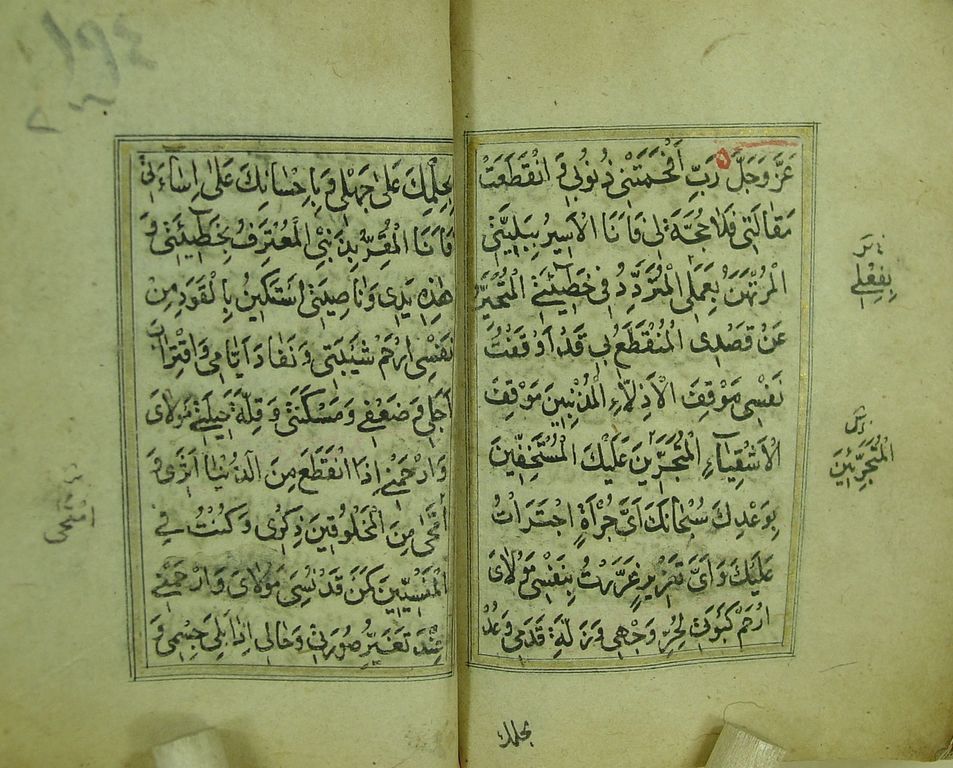 عَزَّ وَجَلَّ رَبِّ أَفْحَمَتْنِي ذُنُوبِي وَ انْقَطَعَتْ
مَقَالَتِي فَلَا حُجَّةَ لِي فَأَنَا الْأَسِيرُ بِبَلِيَّتِي
الْمُرْتَهَنُ بِعَمَلِي الْمُتَرَدِّدُ فِي خَطِيئَتِي الْمُتَحَيِّرُ
عَنْ قَصْدِي الْمُنْقَطَعُ بِي قَدْ أَوْقَفْتُ
نَفْسِي مَوْقِفَ الْأَذِلَّاءِ الْمُذْنِبِينَ مَوْقِفَ
الْأَشْقِيَاءِ الْمُتَجَرِّينَ عَلَيْكَ الْمُسْتَخِفِّينَ
بِوَعْدِكَ سُبْحَانَكَ أَيَّ جُرْأَةٍ اجْتَرَأْتُ
عَلَيْكَ وَأَيَّ تَغْرِيرٍ غَرَّرْتُ بِنَفْسِي مَوْلَايَ
ارْحَمْ كَبْوَتِي لِحُرِّ وَجْهِي وَزَلَّةَ قَدَمِي وَعُدْ
بِفِعْلِي
الْمُتَجَرِّئِينَ
بحلمك
بِحِلْمِكَ عَلَى جَهْلِي وَبِإِحْسَانِكَ عَلَى إِسَاءَتِي
فَأَنَا الْمُقِرُّ بِذَنْبِي الْمُعْتَرِفُ بِخَطِيئَتِي وَ
هَذِهِ يَدِي وَنَاصِيَتِي أَسْتَكِينُ بِالْقَوَدِ مِنْ
نَفْسِي ارْحَمْ شَيْبَتِي وَنَفَادَ أَيَّامِي وَاقْتِرَابَ
أَجَلِي وَضَعْفِي وَمَسْكَنَتِي وَقِلَّةَ حِيلَتِي مَوْلَايَ
وَارْحَمْنِي إِذَا انْقَطَعَ مِنَ الدُّنْيَا أَثَرِي وَ
أَمْحَى مِنَ الْمَخْلُوقِينَ ذِكْرِي وَكُنْتُ فِي
الْمَنْسِيِّينَ كَمَنْ قَدْ نُسِيَ مَوْلَايَ وَارْحَمْنِي
عِنْدَ تَغَيُّرِ صُورَتِي وَحَالِي إِذَا بَلِيَ جِسْمِي وَ